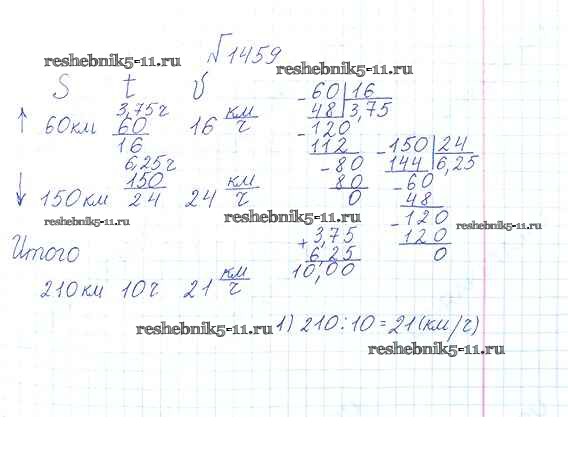 №1459
reshebnik5-11.ru
reshebnik5-11.ru
S t v
↑ 60км 3,75ч 60/16 16 км/ч
↓ 150км 6,25ч 150/24 24 км/ч
reshebnik5-11.ru
reshebnik5-11.ru
Итого
210км 10ч 21 км/ч
- 60 | 16
48 | 3,75
- 120
112
- 80
80
0
- 150 | 24
144 | 6,25
- 60
48
- 120
120
0
+ 3,75
6,25
10,00
reshebnik5-11.ru
1) 210:10=21(км/ч)
reshebnik5-11.ru